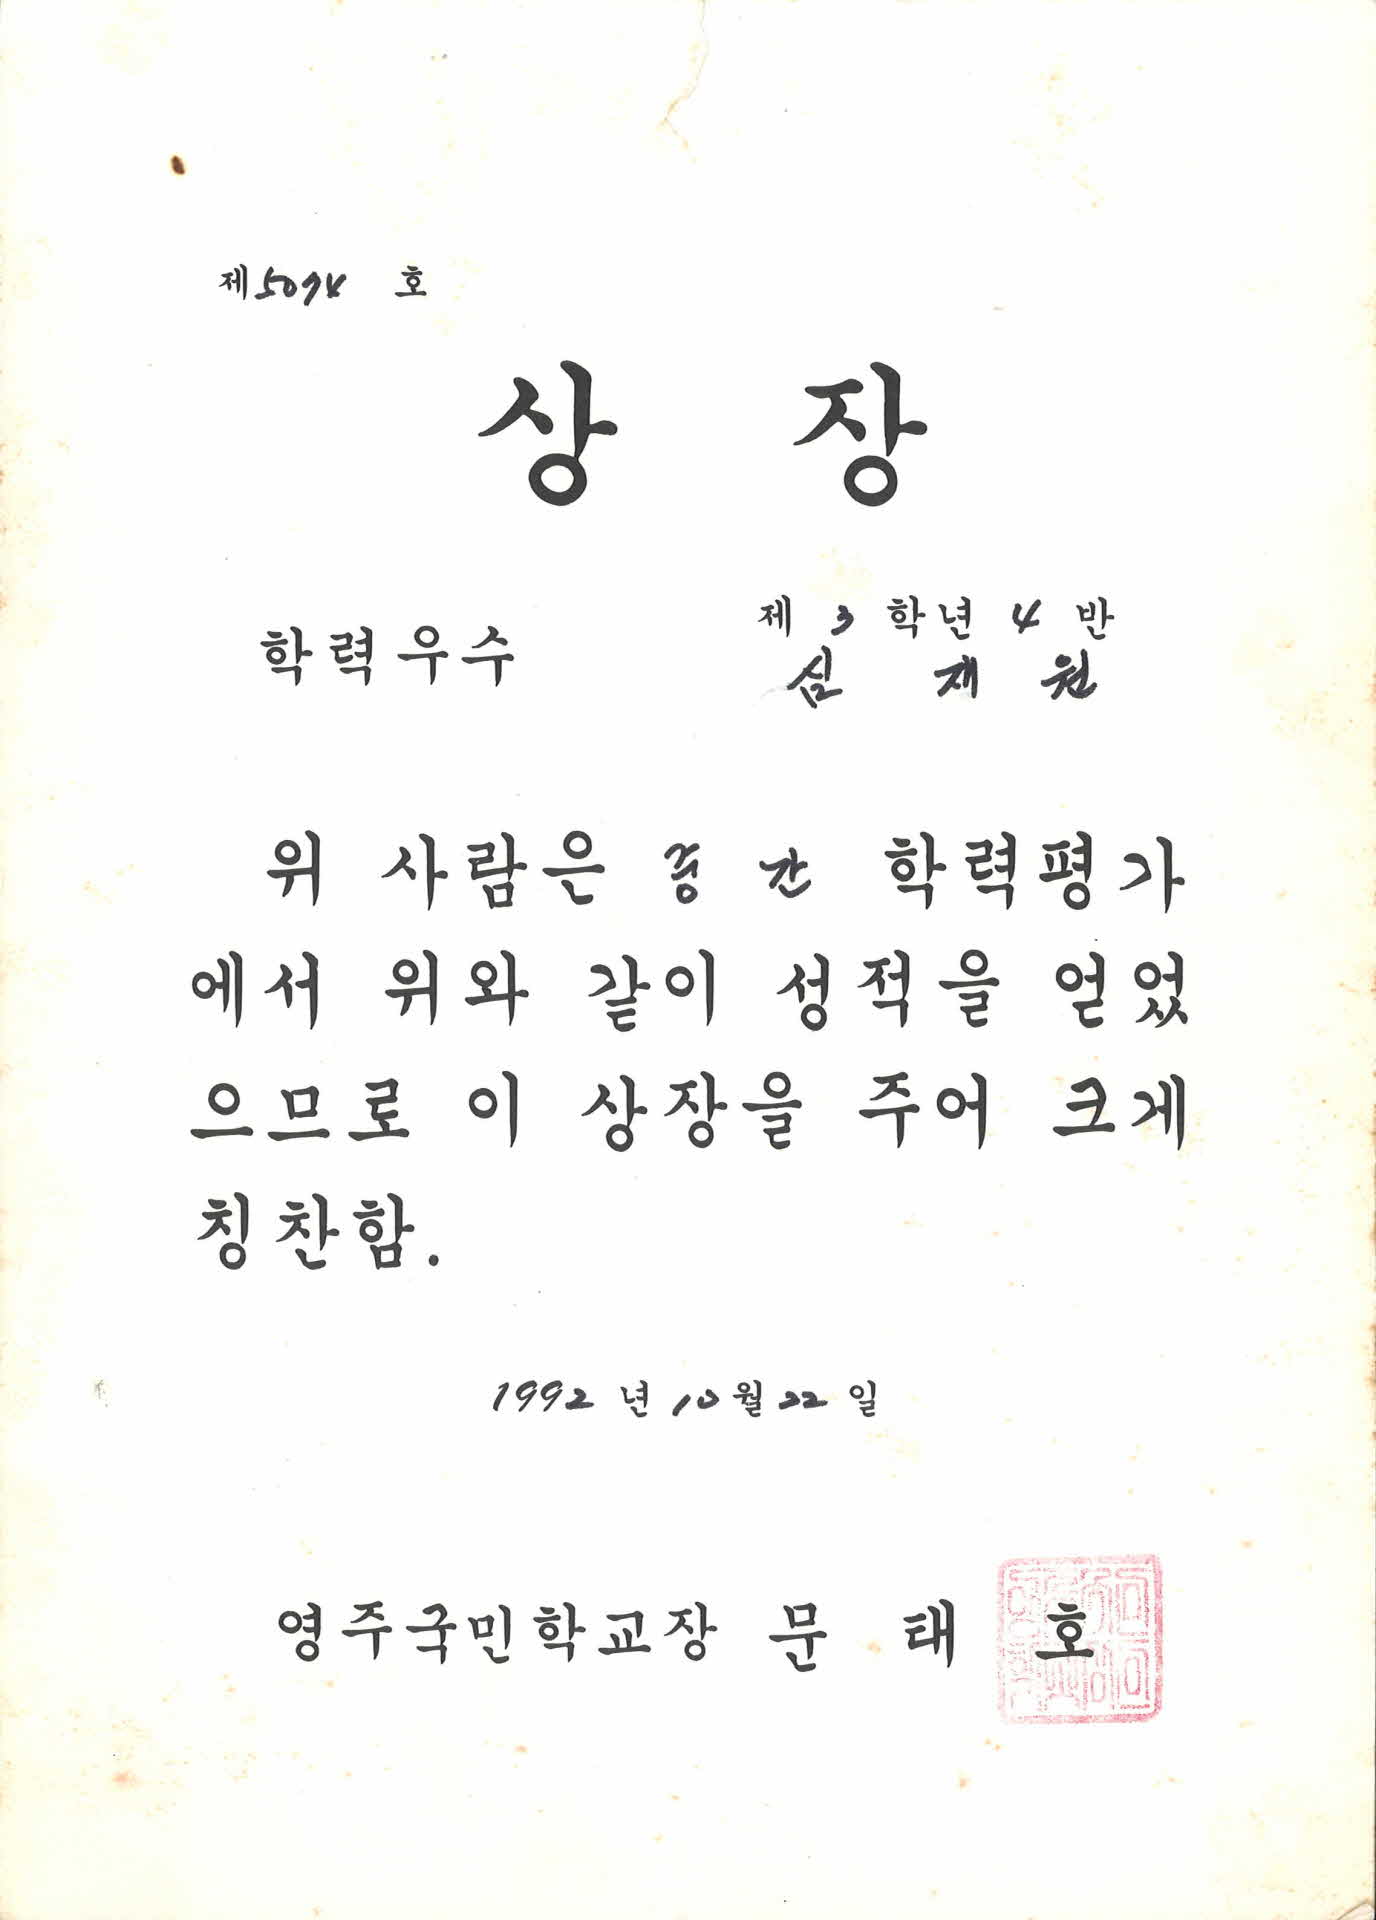 제5094 호
상 장
학력우수
제 3 학년 4 반
심 재 원
위 사람은 중 간 학력평가
에서 위와 같이 성적을 얻었
으므로 이 상장을 주어 크게
칭찬함.
1992 년 10 월 22 일
영주국민학교장 문 태 호